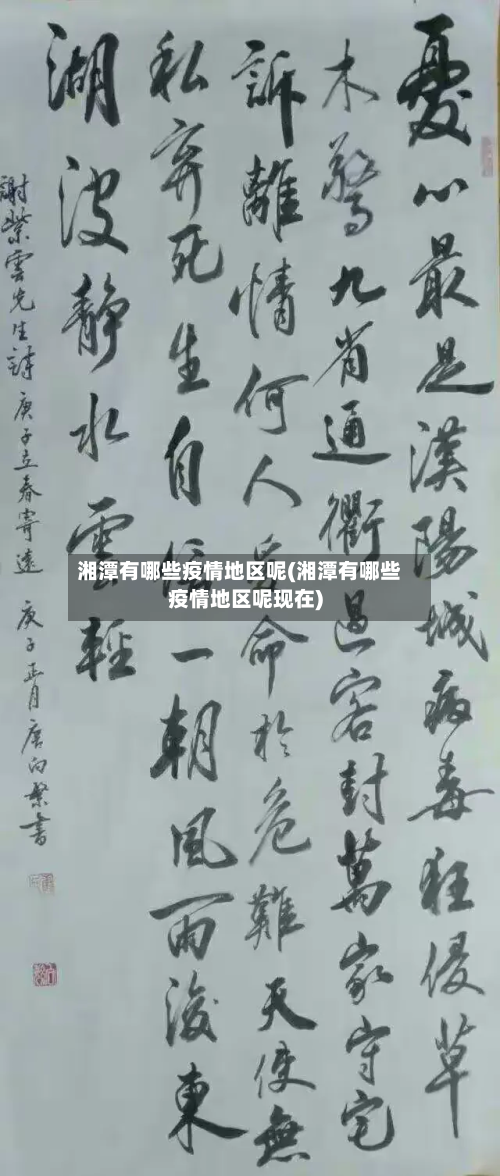 憂心最是漢陽城病毒狂侵草
木驚九省通衢過客封萬家守宅
訴離情何人受命於危難天使無
私弃死生自信一朝風雨後東
湖波静水雲輕
謝紫雲先生詩庚子立春寄遠 庚子正月唐向榮書
湘潭有哪些疫情地区呢(湘潭有哪些
疫情地区呢现在)